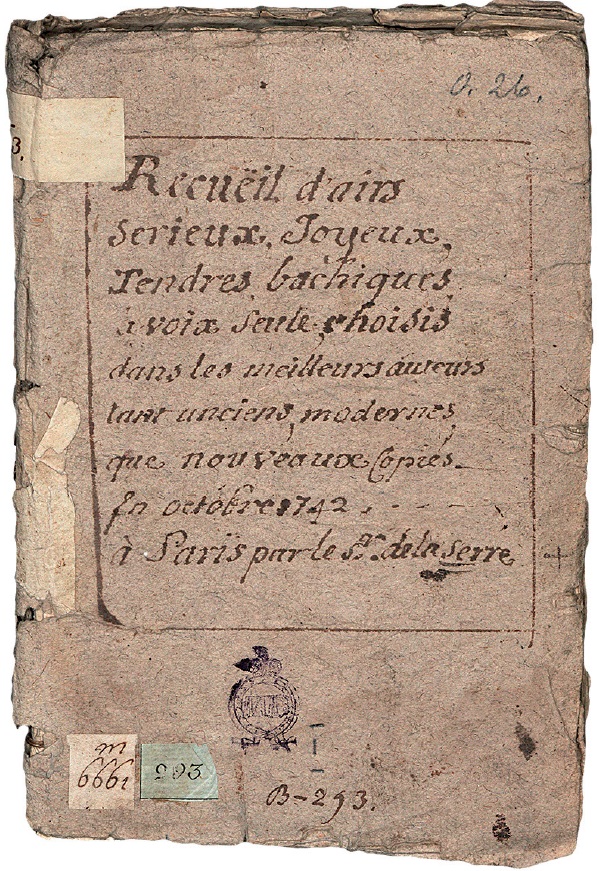 O. 26.
3.
Recuëil d'airs
serieux, Joyeux,
Tendres, bachiques,
à voix seule, choisis
dans les meilleurs auteurs
tant anciens, modernes,
que nouveaux Copiés
En octobre 1742.
à Parïs par le Sr. de la serre
m
6661
293
B-293.